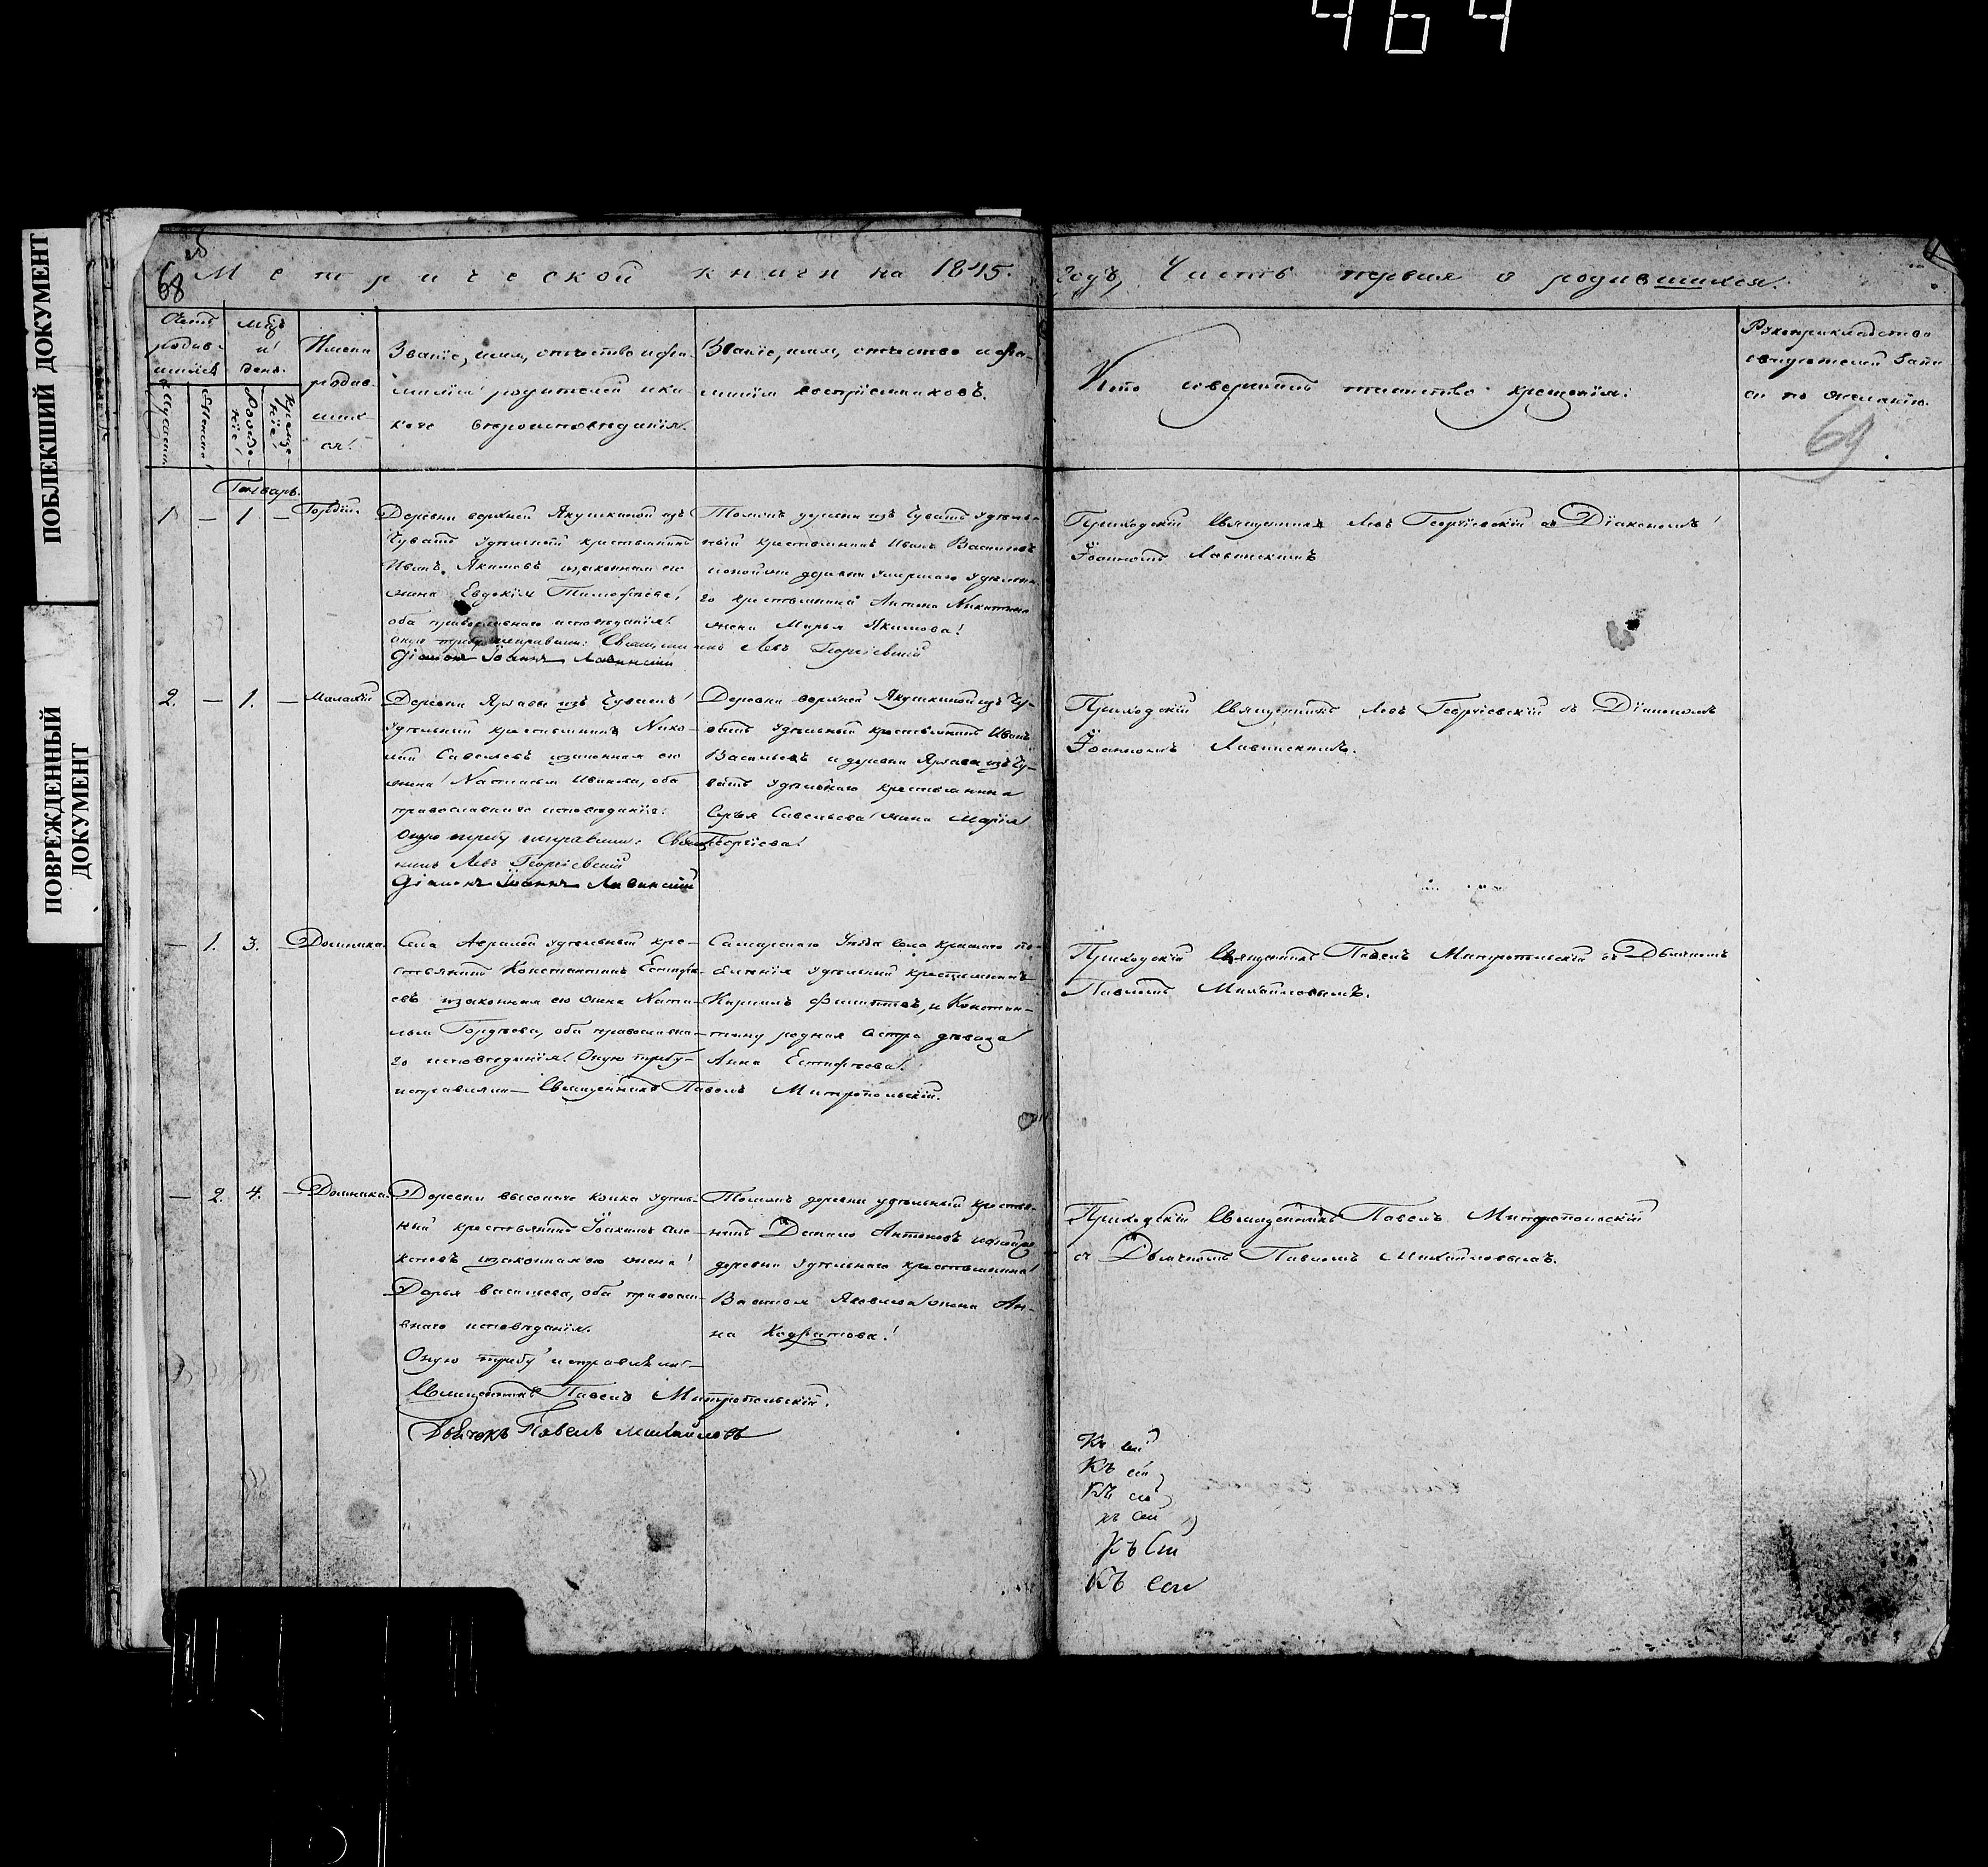 464
ПОБЛЕКШИЙ ДОКУМЕНТ
ПОВРЕЖДЕННЫЙ
ДОКУМЕНТ
68
Метрической книги на 1845. годъ, Часть первая о родившихся.
Счетъ
родив-
шихся
мцъ
и
день.
Имена
родив-
ших-
ся.
Званіе, имя, отчество и фа-
миліи родителей и ка-
кого вѣроисповѣданія.
Званіе, имя, отчество и фа-
миліи воспріемниковъ.
Кто совершалъ таинство крещенія.
Рукоприкладство
свидетелей запи
си по желанію.
69
Генварь.
1 — 1 — Гордій.
Деревни верхней Якушкиной изъ
Чувашъ удѣльный крестьянинъ
Иванъ Якимовъ и законная его
жена Евдокія Тимофѣева,
оба православнаго исповѣданія.
оную требу исправили: Священникъ Левъ Георгіевскій
Діаконъ Іоаннъ Лавинскій
деревни изъ Чувашъ удѣль-
ный крестьянинъ Иванъ Васильевъ
деревни умершаго удѣльна-
го крестьянина Антона Никитина
жена Марья Якимова.
Приходскій Священникъ Левъ Георгіевскій съ Діакономъ
Іоанномъ Лавинскимъ
2. — 1. — Малахій
Деревни из Чувашъ
удѣльный крестьянинъ Нико-
лай Савельевъ и законная его
жена Настасья Иванова, оба
православнаго исповѣданія.
Оную требу исправили: Священ
никъ Левъ Георгіевскій
Діаконъ Іоаннъ Лавинскій
Деревни верхней Якушкиной изъ Чу-
вашъ удѣльный крестьянинъ Иванъ
Васильевъ и деревни изъ Чу-
вашъ удѣльнаго крестьянина
Савельева жена Марія
Георгіева.
Приходскій Священникъ Левъ Георгіевскій съ Діакономъ
Іоанномъ Лавинскимъ.
— 1. 3. — Домника.
Села удѣльный кре-
стьянинъ Константинъ Естифѣ-
евъ и законная его жена Ната-
лья Гордѣева, оба православна-
го исповѣданія. Оную требу
исправили — Священникъ Павелъ Митропольскій.
Самарскаго Уѣзда села
удѣльный крестьянинъ
Кирилъ Филиповъ, и Констан-
тину родная сестра девица
Анна Естифѣева.
Приходскій Священникъ Павелъ Митропольскій съ Дьячкомъ
Павломъ Михайловымъ.
— 2. 4. — Домника.
Деревни высокаго колка удѣль-
ный крестьянинъ Іоакимъ
и законная его жена
Дарья Васильева, оба православ-
внаго исповѣданія.
Оную требу исправляли —
Священникъ Павелъ Митропольскій.
Дьячокъ Павелъ Михайловъ
деревни удѣльный крестья-
нинъ Данило Антоновъ
деревни удѣльнаго крестьянина
Василья Яковлева жена Ан-
на
Приходскій Священникъ Павелъ Митропольскій
съ Дьячкомъ Павломъ Михайловымъ.
Къ сей
Къ сей
Къ сей
къ сей
Къ Сей
Къ сей